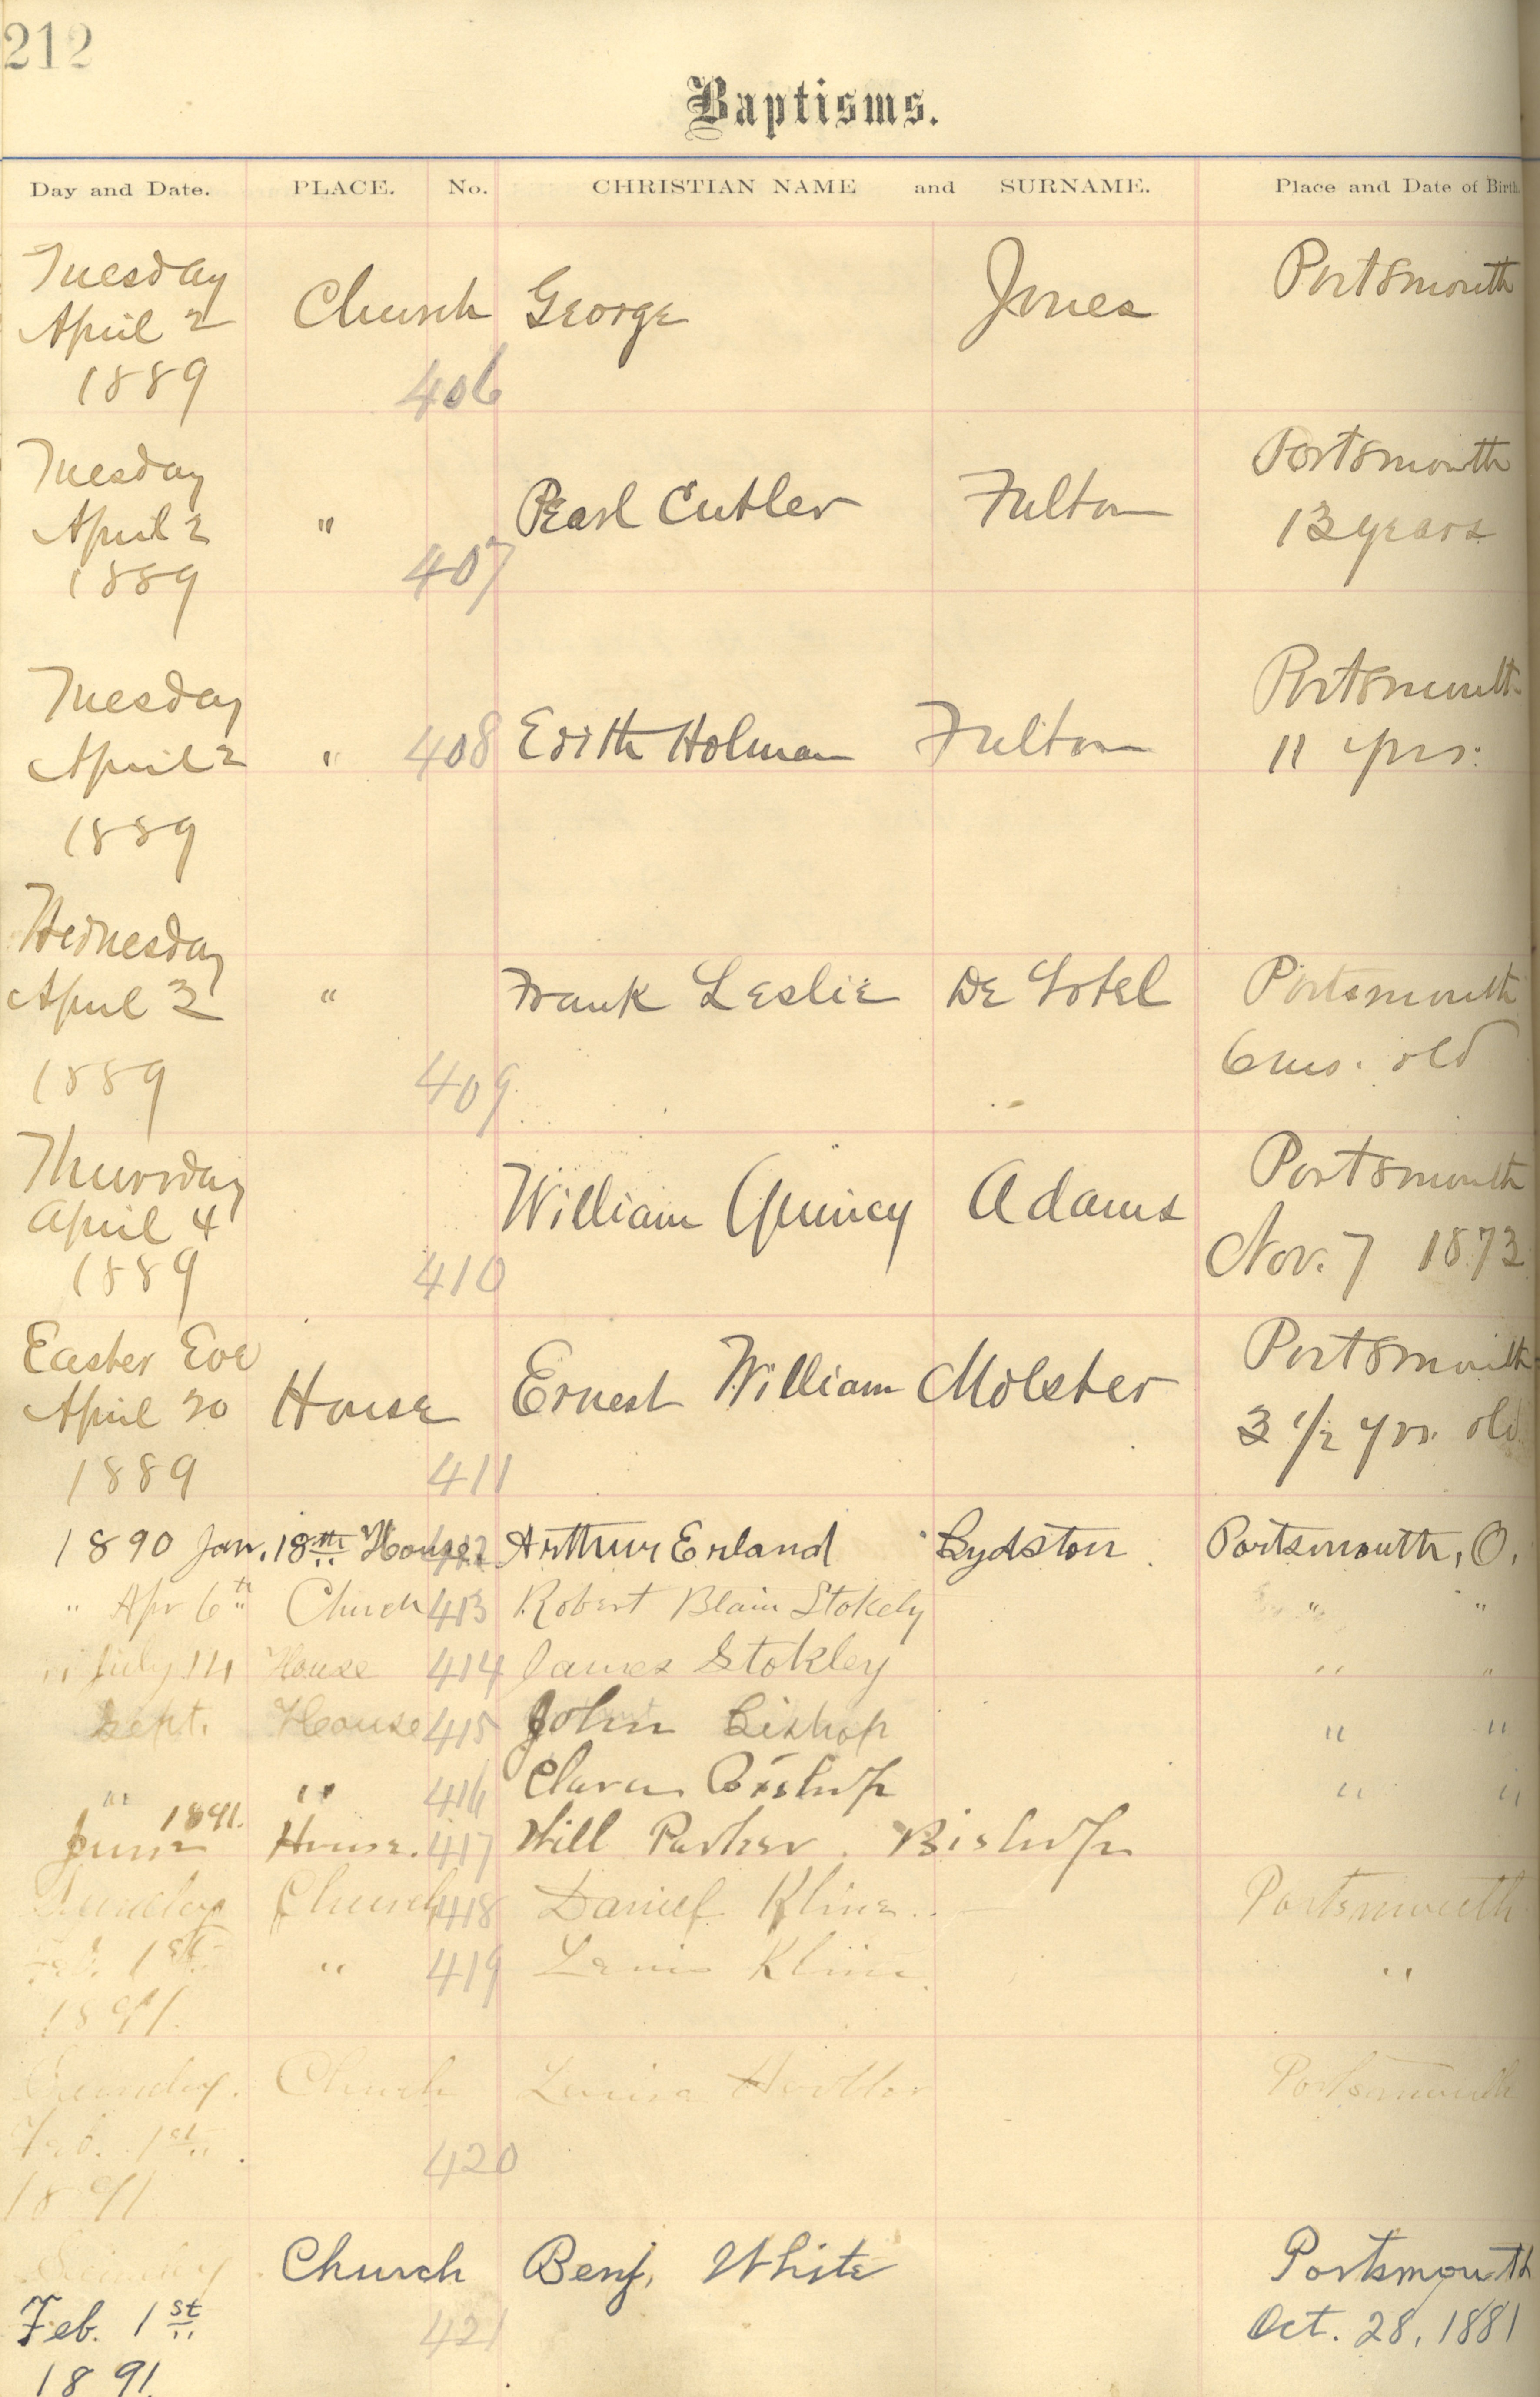 212
Baptisms.
Day and Date. PLACE. No. CHRISTIAN NAME and SURNAME. Place and Date of Birth.
Tuesday
April 2 Church George Jones Portsmouth
1889 406
Tuesday Portsmouth
April 2 " Pearl Cutler Fulton 13 years
1889 407
Tuesday Portsmouth
April 2 " 408 Edith Holman Fulton 11 yrs.
1889
Wednesday
April 3 " Frank Leslie De Portsmouth
1889 409 6 mos. old
Thursday Portsmouth
April 4 William Quincy Adams
1889 410 Nov. 7 1873
Easter Eve Portsmouth
April 20 House Ernest William Molster 3 1/2 yrs. old
1889 411
1890 Jan. 18th House. 412 Arthur Erland Lydston. Portsmouth, O.
" Apr 6th Church 413 Robert Blain Stokely " "
" July 14 House 414 James Stokley " "
Sept. House 415 John Bishop " "
" " 416 Clara Bishop " "
1891.
June House. 417 Will Parker. Bishop
Sunday Church 418 Daniel Kline. Portsmouth
Feb. 1st " 419 Kline. "
1891.
Sunday. Church Louisa Portsmouth
Feb. 1st.
420
1891
Sunday Church Benj. White Portsmouth
Feb. 1st 421 Oct. 28, 1881
1891.